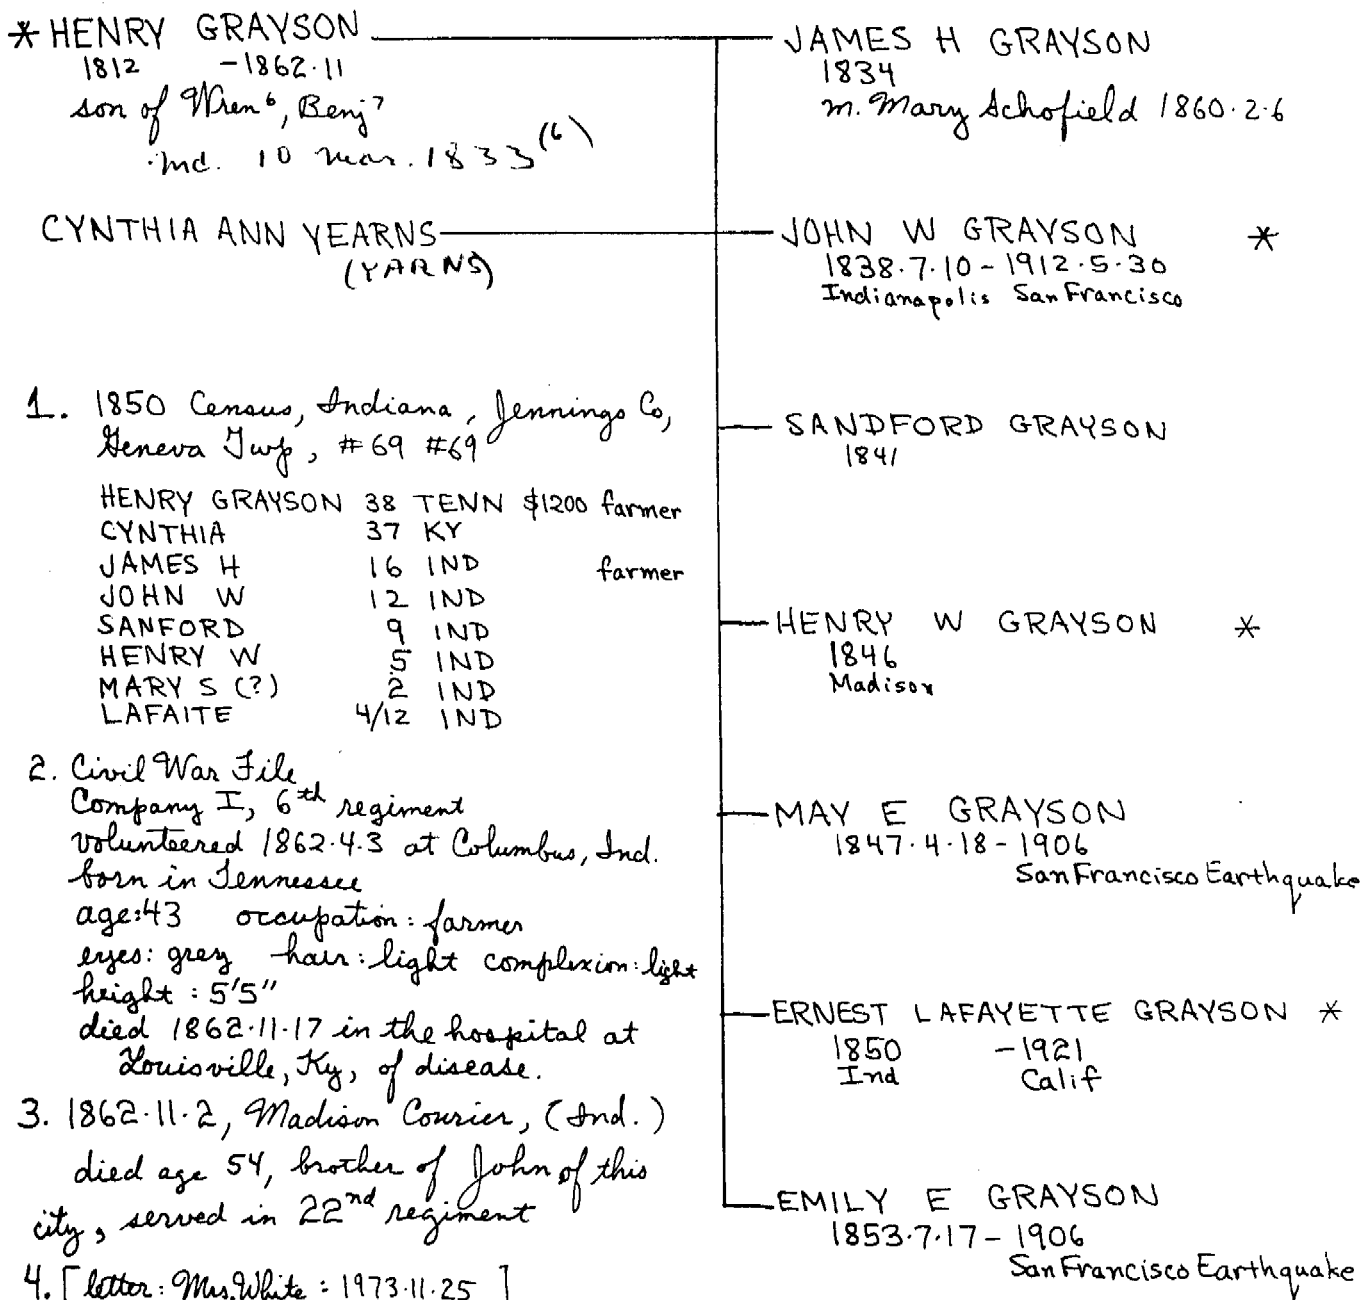 * HENRY GRAYSON
1812 - 1862.11
son of Wren⁶, Benj⁷
md. 10 Mar. 1833 (6)
CYNTHIA ANN YEARNS
(YARNS)
1. 1850 Census, Indiana, Jennings Co,
Geneva Twp, #69 #69
HENRY GRAYSON 38 TENN $1200 farmer
CYNTHIA 37 KY
JAMES H 16 IND farmer
JOHN W 12 IND
SANFORD 9 IND
HENRY W 5 IND
MARY S (?) 2 IND
LAFAITE 4/12 IND
2. Civil War File
Company I, 6th regiment
volunteered 1862.4.3 at Columbus, Ind.
born in Tennessee
age:43 occupation: farmer
eyes: grey hair: light complexion: light
height: 5'5"
died 1862.11.17 in the hospital at
Louisville, Ky, of disease.
3. 1862.11.2, Madison Courier, (Ind.)
died age 54, brother of John of this
city, served in 22nd regiment
4. [letter: Mrs. White: 1973.11.25]
JAMES H GRAYSON
1834
m. Mary Schofield 1860.2.6
JOHN W GRAYSON *
1838.7.10 - 1912.5.30
Indianapolis San Francisco
SANDFORD GRAYSON
1841
HENRY W GRAYSON *
1846
Madison
MAY E GRAYSON
1847.4.18 - 1906
San Francisco Earthquake
ERNEST LAFAYETTE GRAYSON *
1850 - 1921
Ind Calif
EMILY E GRAYSON
1853.7.17 - 1906
San Francisco Earthquake